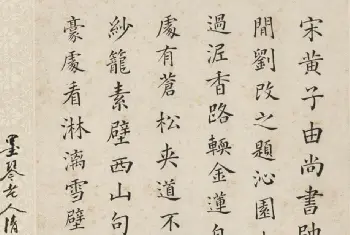 宋黃子由尚書帥
閒劉改之題沁園
過渥香路轉金蓮
處有蒼松夾道不
紗籠素壁西山句
豪處看淋漓雪壁
墨琴老人